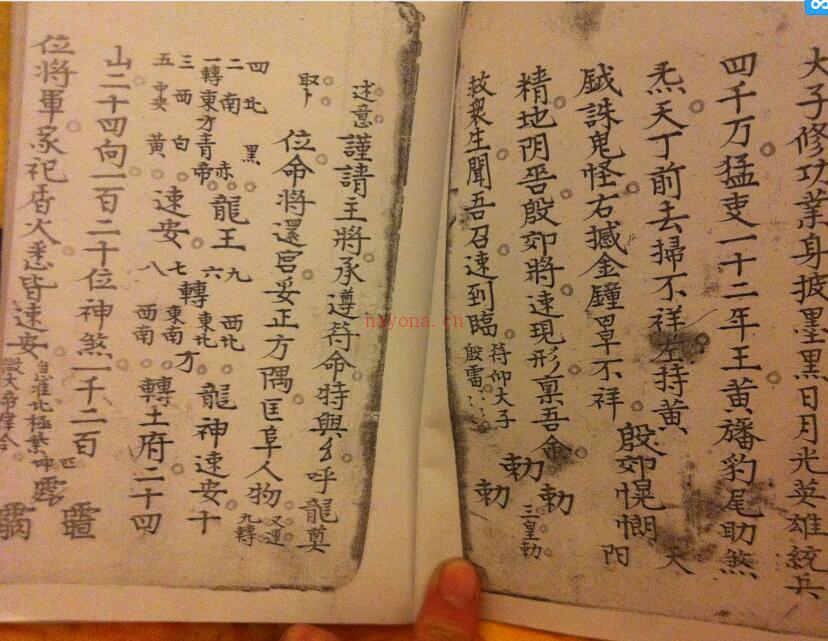 大子修功業身披墨黑日月光英雄統兵
四千万猛吏一十二年王黄旛豹尾助煞
炁天丁前去掃不祥左持黄
天
鉞誅鬼怪右撼金鐘罩不祥
殷郊愰惘
精地阴吾殷郊將速現形禀吾命
勅
勅
勅
三皇勅
救衆生聞吾召速到臨
符仰大子
殷雷
述意
謹請主將承遵符命特與
呼龍奠
位命將還宫妥正方隅匡阜人物
又運
九轉
四北黑
二南赤
一轉東方青帝
三西白
五中央黄
龍王
速安
九西北
六東北
七東南
八西南
轉
方
龍神速安十
轉土府二十四
山二十四向一百二十位神煞一千二百
位將軍家祀香火悉皆速安
nayona.cn